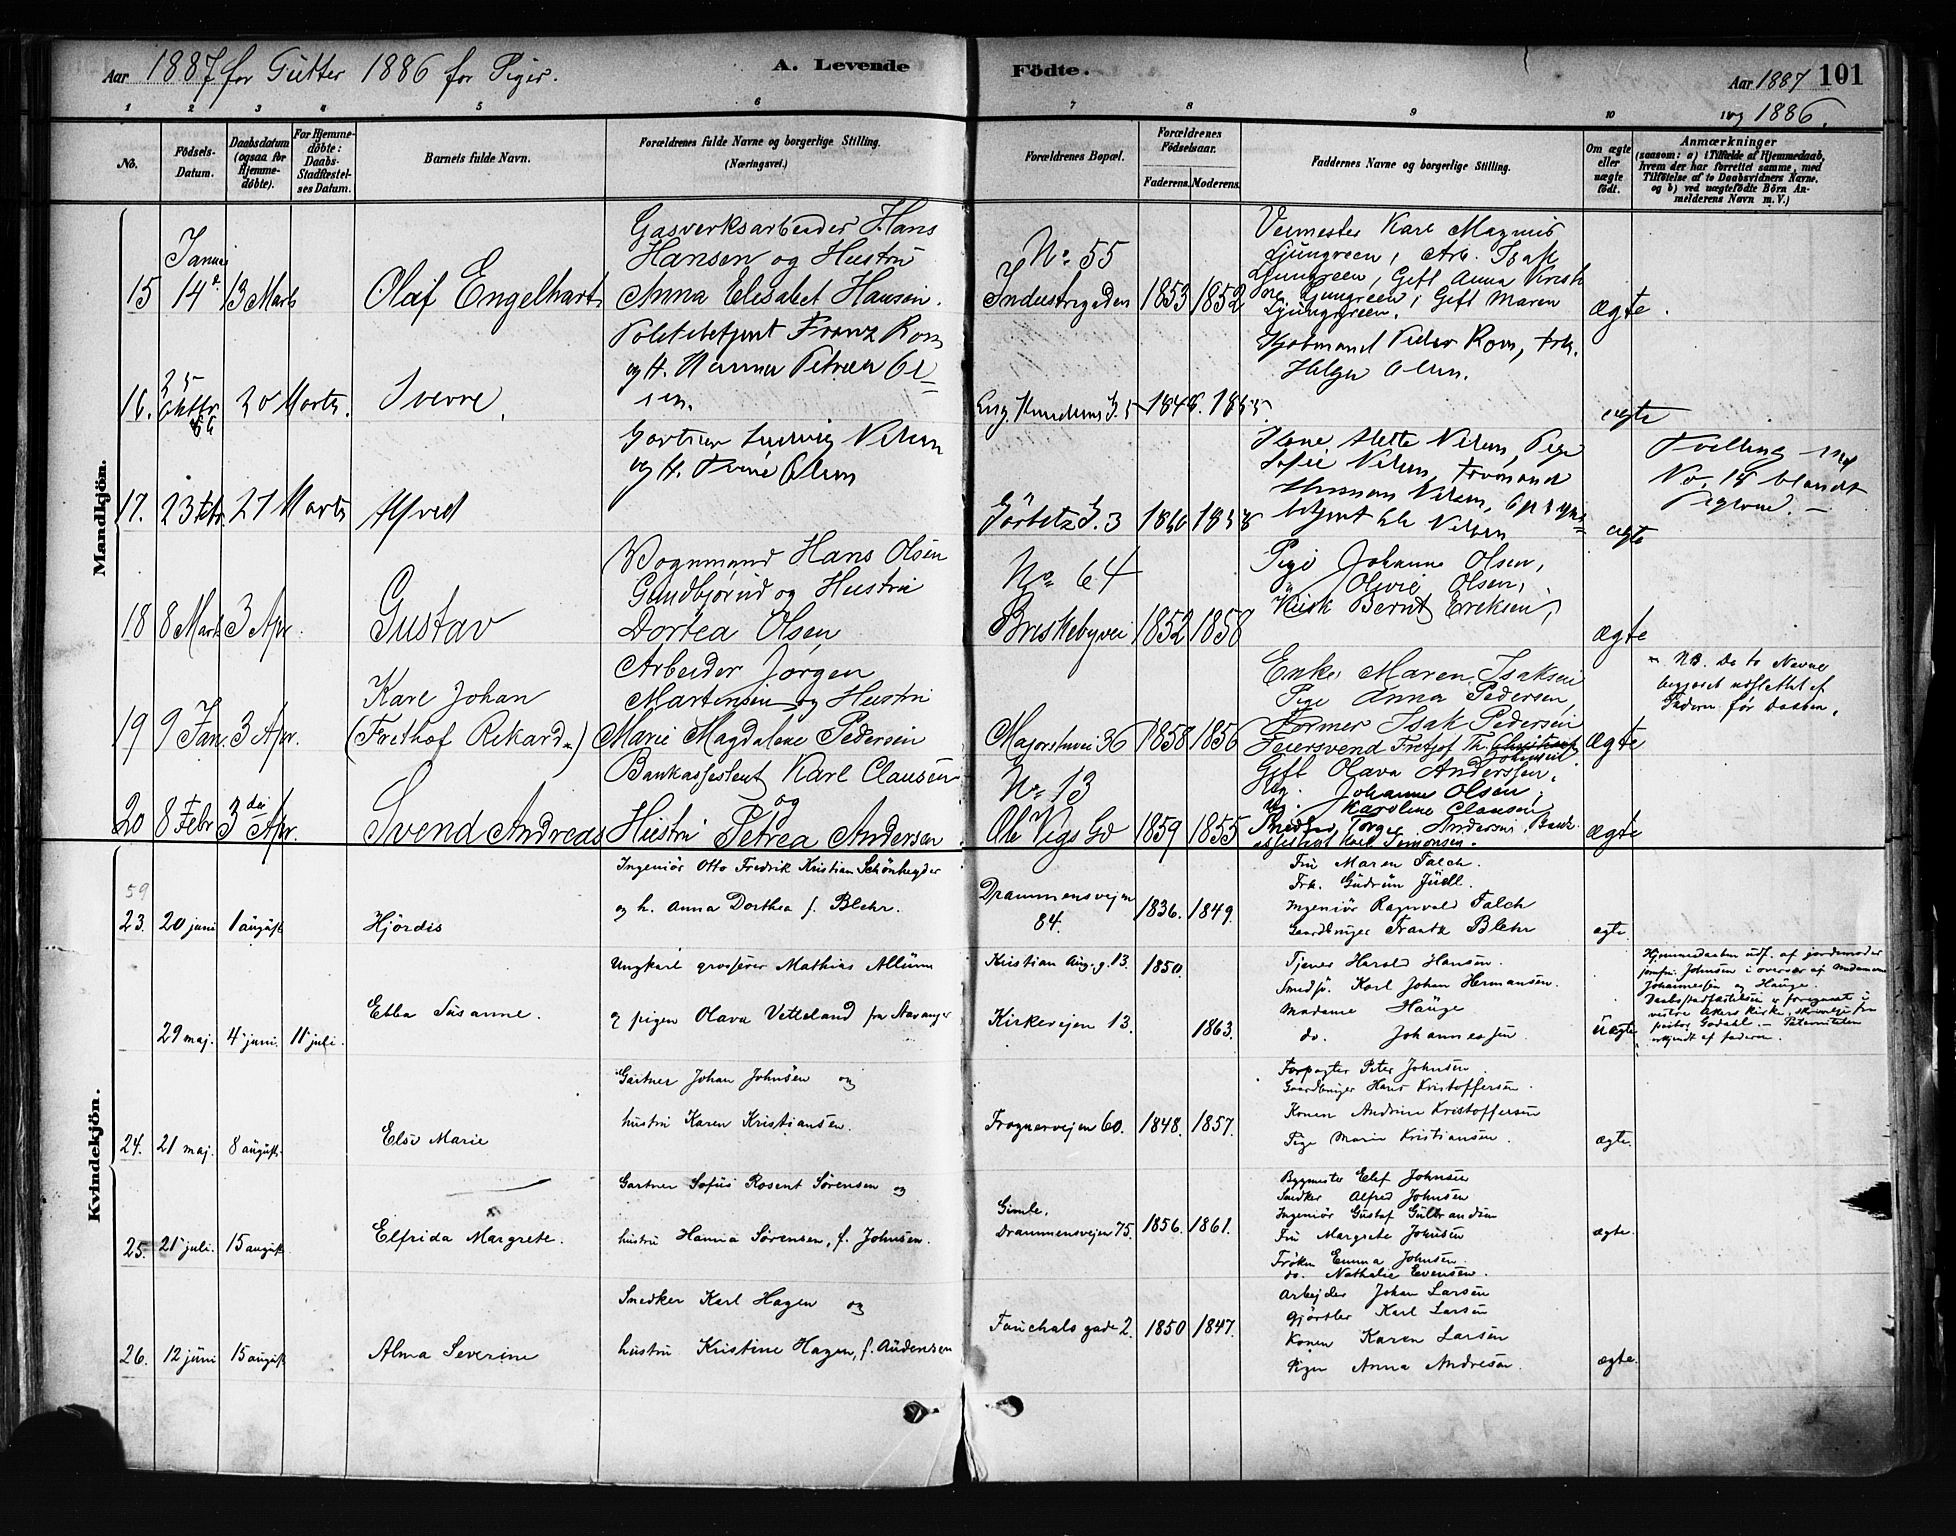 Aar 1887 for Gutter 1886 for Piger.
A. Levende Födte.
Aar 1887 101
og 1886.
1 2 3 4 5 6 7 8 9 10
No.
Födsels-Datum.
Daabsdatum (ogsaa for Hjemme-döbte).
For Hjemme-döbte: Daabs-Stadfæstel-ses Datum.
Barnets fulde Navn.
Forældrenes fulde Navne og borgerlige Stilling.
(Næringsvei.)
Forældrenes Bopæl.
Forældrenes Födselsaar.
Faderens. Moderens.
Faddernes Navne og borgerlige Stilling.
Om ægte eller uægte födt.
Anmærkninger
(saasom: a) i Tilfælde af Hjemmedaab,
hvem der har forrettet samme, med
Tilföielse af to Daabsvidners Navne.
og b) ved uægtefödte Börn An-
melderens Navn m. V.)
Mandkjön.
15 Januar 14de 13 Marts
Olaf Engelhart
Gasverksarbeider Hans
Hansen og Hustru
Anna Elisabet Hansen.
No 55
Industrigaden
1853 1852
Karl Magnus
Ljungreen, Arb. Isak
Ljungreen, Gift Anna Krist
ine Ljungreen, Gift Maren
Ljungreen.
ægte.
16. 25 Oktbr. 86 20 Marts.
Sverre.
Politibetjent Franz Rom
og H. Petrea Ol=
sen.
Kjøbmand Peder Rom,
Helga Olsen.
ægte
17. 23 Febr. 27 Marts
Alfred
Gartner Ludvig Nilsen
og H. Trine Olsen
Görbitz G. 3
1860 1858
Mette Nilsen, Pige
Sofie Nilsen,
Nilsen,
betjent Nilsen
ægte
Tvilling med
No. 18 blandt
Pigerne. —
18 8 Marts 3 Apr.
Gustav
Vognmand Hans Olsen
Gundbjørud og Hustru
Dortea Olsen
No 64
Briskebyvei
1852 1858
Pige Johanne Olsen,
Olivie Olsen,
Kusk Bernt Eriksen,
ægte
19 9 Jan. 3 Apr.
Karl Johan
(Frethof Rikard)
Arbeider Jørgen
Martinsen og Hustru
Marie Magdalene Pedersen
Majorstuvei 36
1858 1856
Enke Maren Isaksen
Pige Anna Pedersen,
Former Isak Pedersen
Feiersvend Fretjof Th. Christians
Johansen
ægte
NB. De to Navne
begjæret udslettet af
Faderen før Daaben.
20 8 Febr 3die Apr.
Svend Andreas
Bankassistent Karl Clausen
og
Hustru Petrea Andersen.
No 13
Ole Vigs Gd
1859 1855
Gift Olava Anderssen,
Ug. Johanne Olsen,
Ug. Karoline Clausen
Snedker Torger Andersen, Bank-
assistent Karl Simonsen.
ægte
Kvindekjön.
59
23. 20 juni 1 august
Hjördis
Ingeniör Otto Fredrik Kristian Schönheyder
og h. Anna Dorthea f. Blehr.
Drammensvejen
84.
1836. 1849.
Fru Maren Falch.
Frk. Gudrun Juell.
Ingeniör Ragnvald Falch
Gaardbruger Frantz Blehr
ægte.
29 maj. 4 juni. 11 juli.
Ebba Susanne.
Ungkarl grosserer Mathias Allum
og pigen Olava Vetteland fra Stavanger
Kristian Aug. g. 13.
Kirkevejen 13.
1850.
1863.
Tjener Harald Hansen.
Smedsv. Karl Johan Hermansen.
Madame Hauge
do. Johannessen
Uægte.
Hjemmedaaben udf. af jordemoder
jomfru Johnsen i overvær af madamerne
Johannessen og Hauge.
Daabsstadfæstelsen er foregaaet i
vestre Akers kirke, skrivelse fra
pastor Godahl. — Paterniteten
erkjendt af faderen.
24. 21 maj. 8 august.
Else Marie
Gartner Johan Johnsen og
hustru Karen Kristiansen.
Frognervejen 60.
1848. 1857.
Forpagter Peter Johnsen.
Gaardbruger Hans Kristoffersen.
Konen Andrine Kristoffersen
Pige Marie Kristiansen.
ægte.
25. 21 juli. 15 august
Elfrida Margrete.
Gartner Sofus Rosent Sörensen og
hustru Hanna Sörensen, f. Johnsen.
Gimle,
Drammensvejen 75.
1856. 1861.
Bygmester Elef Johnsen
Snedker Alfred Johnsen
Ingeniör Gustaf Gulbrandsen
Fru Margrete Johnsen
Fröken Emma Johnsen.
do. Nathalie Evensen.
ægte.
26. 12 juni 15 august
Alma Severine
Snedker Karl Hagen og
hustru Kristine Hagen, f. Audensen
Fauchalsgade 2.
1850 1847.
Arbejder Johan Larsen
Gjörtler Karl Larsen
Konen Karen Larsen
Pigen Anna Andresen.
ægte.